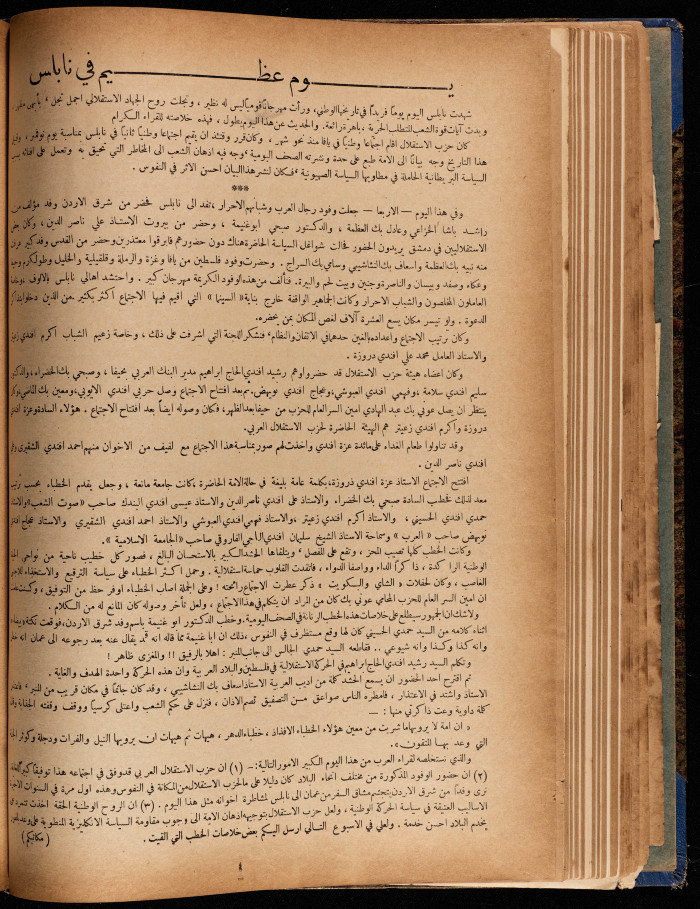 يوم عظيم في نابلس
شهدت نابلس اليوم يوماً فريداً في تاريخها الوطني، ورأت مهرجاناً قومياً ليس له نظير، وتجلت روح الجهاد الاستقلالي اجمل تجل،
وبدت آيات قوة الشعب المتطلب الحرية، باهرة رائعة. والحديث عن هذا اليوم يطول، فهذه خلاصته للقراء الكرام
كان حزب الاستقلال اقام اجتماعاً وطنياً في يافا منذ نحو شهر، وكان قرر وقتئذ ان يقيم اجتماعاً وطنياً ثانياً في نابلس بمناسبة يوم نوفمبر،
هذا التاريخ وجه بياناً الى الامة طبع على حدة ونشرته الصحف اليومية، وجه فيه اذهان الشعب الى المخاطر التي تحيق به وتعمل على
السياسة البريطانية الحاملة في مطاويها السياسة الصهيونية، فكان لنشر هذا البيان احسن الاثر في النفوس.
***
وفي هذا اليوم — الاربعا — جعلت وفود رجال العرب وشبانهم الاحرار، تفد الى نابلس فحضر من شرق الاردن وفد مؤلف من
راشد باشا الخزاعي وعادل بك العظمة، والدكتور صبحي ابوغنيمة، وحضر من بيروت الاستاذ علي ناصر الدين، وكان
الاستقلاليين في دمشق يريدون الحضور فحالت شواغل السياسة الحاضرة هناك دون حضورهم فابرقوا معتذرين وحضر من القدس وفد كبير
منه نبيه بك العظمة واسعاف بك النشاشيبي وسامي بك السراج. وحضرت وفود فلسطين من يافا وغزة والرملة وقلقيلية والخليل وطولكرم
وعكاء وصفد وبيسان والناصرة وجنين وبيت لحم والبيرة. فتألف من هذه الوفود الكريمة مهرجان كبير. واحتشد اهالي نابلس بالالوف،
العاملون المخلصون والشباب الاحرار وكانت الجماهير الواقفة خارج بناية «السينما» التي اقيم فيها الاجتماع اكثر بكثير من الذين دخلوا
الدعوة. ولو تيسر مكان يسع العشرة آلاف لغص المكان بمن يحضره.
وكان ترتيب الاجتماع واعداده بالغين حدهما في الاتقان والنظام، فنشكر اللجنة التي اشرفت على ذلك، وخاصة زعيم الشباب اكرم افندي
والاستاذ العامل محمد علي افندي دروزة.
وكان اعضاء هيئة حزب الاستقلال قد حضروا وهم رشيد افندي الحاج ابراهيم مدير البنك العربي بحيفا، وصبحي بك الخضراء،
سليم افندي سلامة، وفهمي افندي العبوشي، وعجاج افندي نويهض، ثم بعد افتتاح الاجتماع وصل حربي افندي الايوبي، ومعين بك الماضي
ينتظر ان يصل عوني بك عبد الهادي امين السر العام للحزب من حيفا بعد الظهر، فكان وصوله ايضاً بعد افتتاح الاجتماع. هؤلاء السادة وعزة
دروزة واكرم افندي زعيتر هم الهيئة الحاضرة لحزب الاستقلال العربي.
وقد تناولوا طعام الغداء على مائدة عزة افندي واخذت لهم صور بمناسبة هذا الاجتماع مع لفيف من الاخوان منهم احمد افندي الشقيري
افندي ناصر الدين.
افتتح الاجتماع الاستاذ عزة افندي دروزة، بكلمة عامة بليغة في حالة الامة الحاضرة، كانت جامعة مانعة، وجعل يقدم الخطباء بحسب
معد لذلك فخطب السادة صبحي بك الخضراء والاستاذ علي افندي ناصر الدين والاستاذ عيسى افندي البندك صاحب «صوت الشعب»
حمدي افندي الحسيني، والاستاذ اكرم افندي زعيتر، والاستاذ فهمي افندي العبوشي والاستاذ احمد افندي الشقيري والاستاذ عجاج
نويهض صاحب «العرب» وسماحة الاستاذ الشيخ سليمان افندي التاجي الفاروقي صاحب «الجامعة الاسلامية».
وكانت الخطب كلها تصيب المحز، وتقع على المفصل، ويتلقاها الحشد الكبير بالاستحسان البالغ، فصور كل خطيب ناحية من نواحي
الوطنية الراكدة، ذاكراً الداء وواصفاً الدواء، فاتقدت القلوب حماسة استقلالية. وحمل اكثر الخطباء على سياسة الترقيع والاستخذاء
الغاصب، وكان لحفلات «الشاي والبسكويت» ذكر عطرت الاجتماع رائحته! وعلى الجملة اصاب الخطباء اوفر حظ من التوفيق،
ان امين السر العام للحزب المحامي عوني بك كان من المراد ان يتكلم في هذا الاجتماع، ولعل تأخر وصوله كان المانع له من الكلام.
ولا شك ان الجمهور سيطلع على خلاصات هذه الخطب الرنانة في الصحف اليومية. وخطب الدكتور ابو غنيمة باسم وفد شرق الاردن، فوقعت نكتة
اثناء كلامه من السيد حمدي الحسيني كان لها وقع مستظرف في النفوس، ذلك ان ابا غنيمة مما قاله انه قد يقال عنه بعد رجوعه الى عمان انه
وانه كذا وكذا وانه شيوعي.. فقاطعه السيد حمدي الجالس الى جانب المنبر: اهلا بالرفيق!! والمغزى ظاهر!
وتكلم السيد رشيد افندي الحاج ابراهيم في الحركة الاستقلالية في فلسطين والبلاد العربية وان هذه الحركة واحدة الهدف والغاية.
ثم اقترح احد الحضور ان يسمع الحشد كلمة من اديب العربية الاستاذ اسعاف بك النشاشيبي، وقد كان جاثماً في مكان قريب من المنبر،
الاستاذ واشتد في الاعتذار، فامطره الناس صواعق من التصفيق تصم الآذان، فنزل على حكم الشعب واعتلى كرسياً ووقف وقفته الجذابة
كلمة داوية وعت ذاكرتي منها: —
« ان امة لا يرويها ما شربت من معين هؤلاء الخطباء الافذاذ، خطباء الدهر، هيهات ثم هيهات ان يرويها النيل والفرات ودجلة وكوثر
التي وعد بها المتقون».
والذي نستخلصه لقراء العرب من هذا اليوم الكبير الامور التالية: — (١) ان حزب الاستقلال العربي قد وفق في اجتماعه هذا توفيقاً كبيراً
(٢) ان حضور الوفود المذكورة من مختلف انحاء البلاد كان دليلا على ما لحزب الاستقلال من المكانة في النفوس وهذه اول مرة في السنوات
نرى وفداً من شرق الاردن يتجشم مشاق السفر من عمان الى نابلس لمشاطرة اخوانه مثل هذا اليوم. (٣) ان الروح الوطنية الحقة اخذت
الاساليب العتيقة في سياسة الحركة الوطنية، ولعل حزب الاستقلال بتوجيهه اذهان الامة الى وجوب مقاومة السياسة الانكليزية المنطوية على وعد
يخدم البلاد احسن خدمة. ولعلي في الاسبوع التالي ارسل اليكم بعض خلاصات الخطب التي القيت. (مكاتبكم)